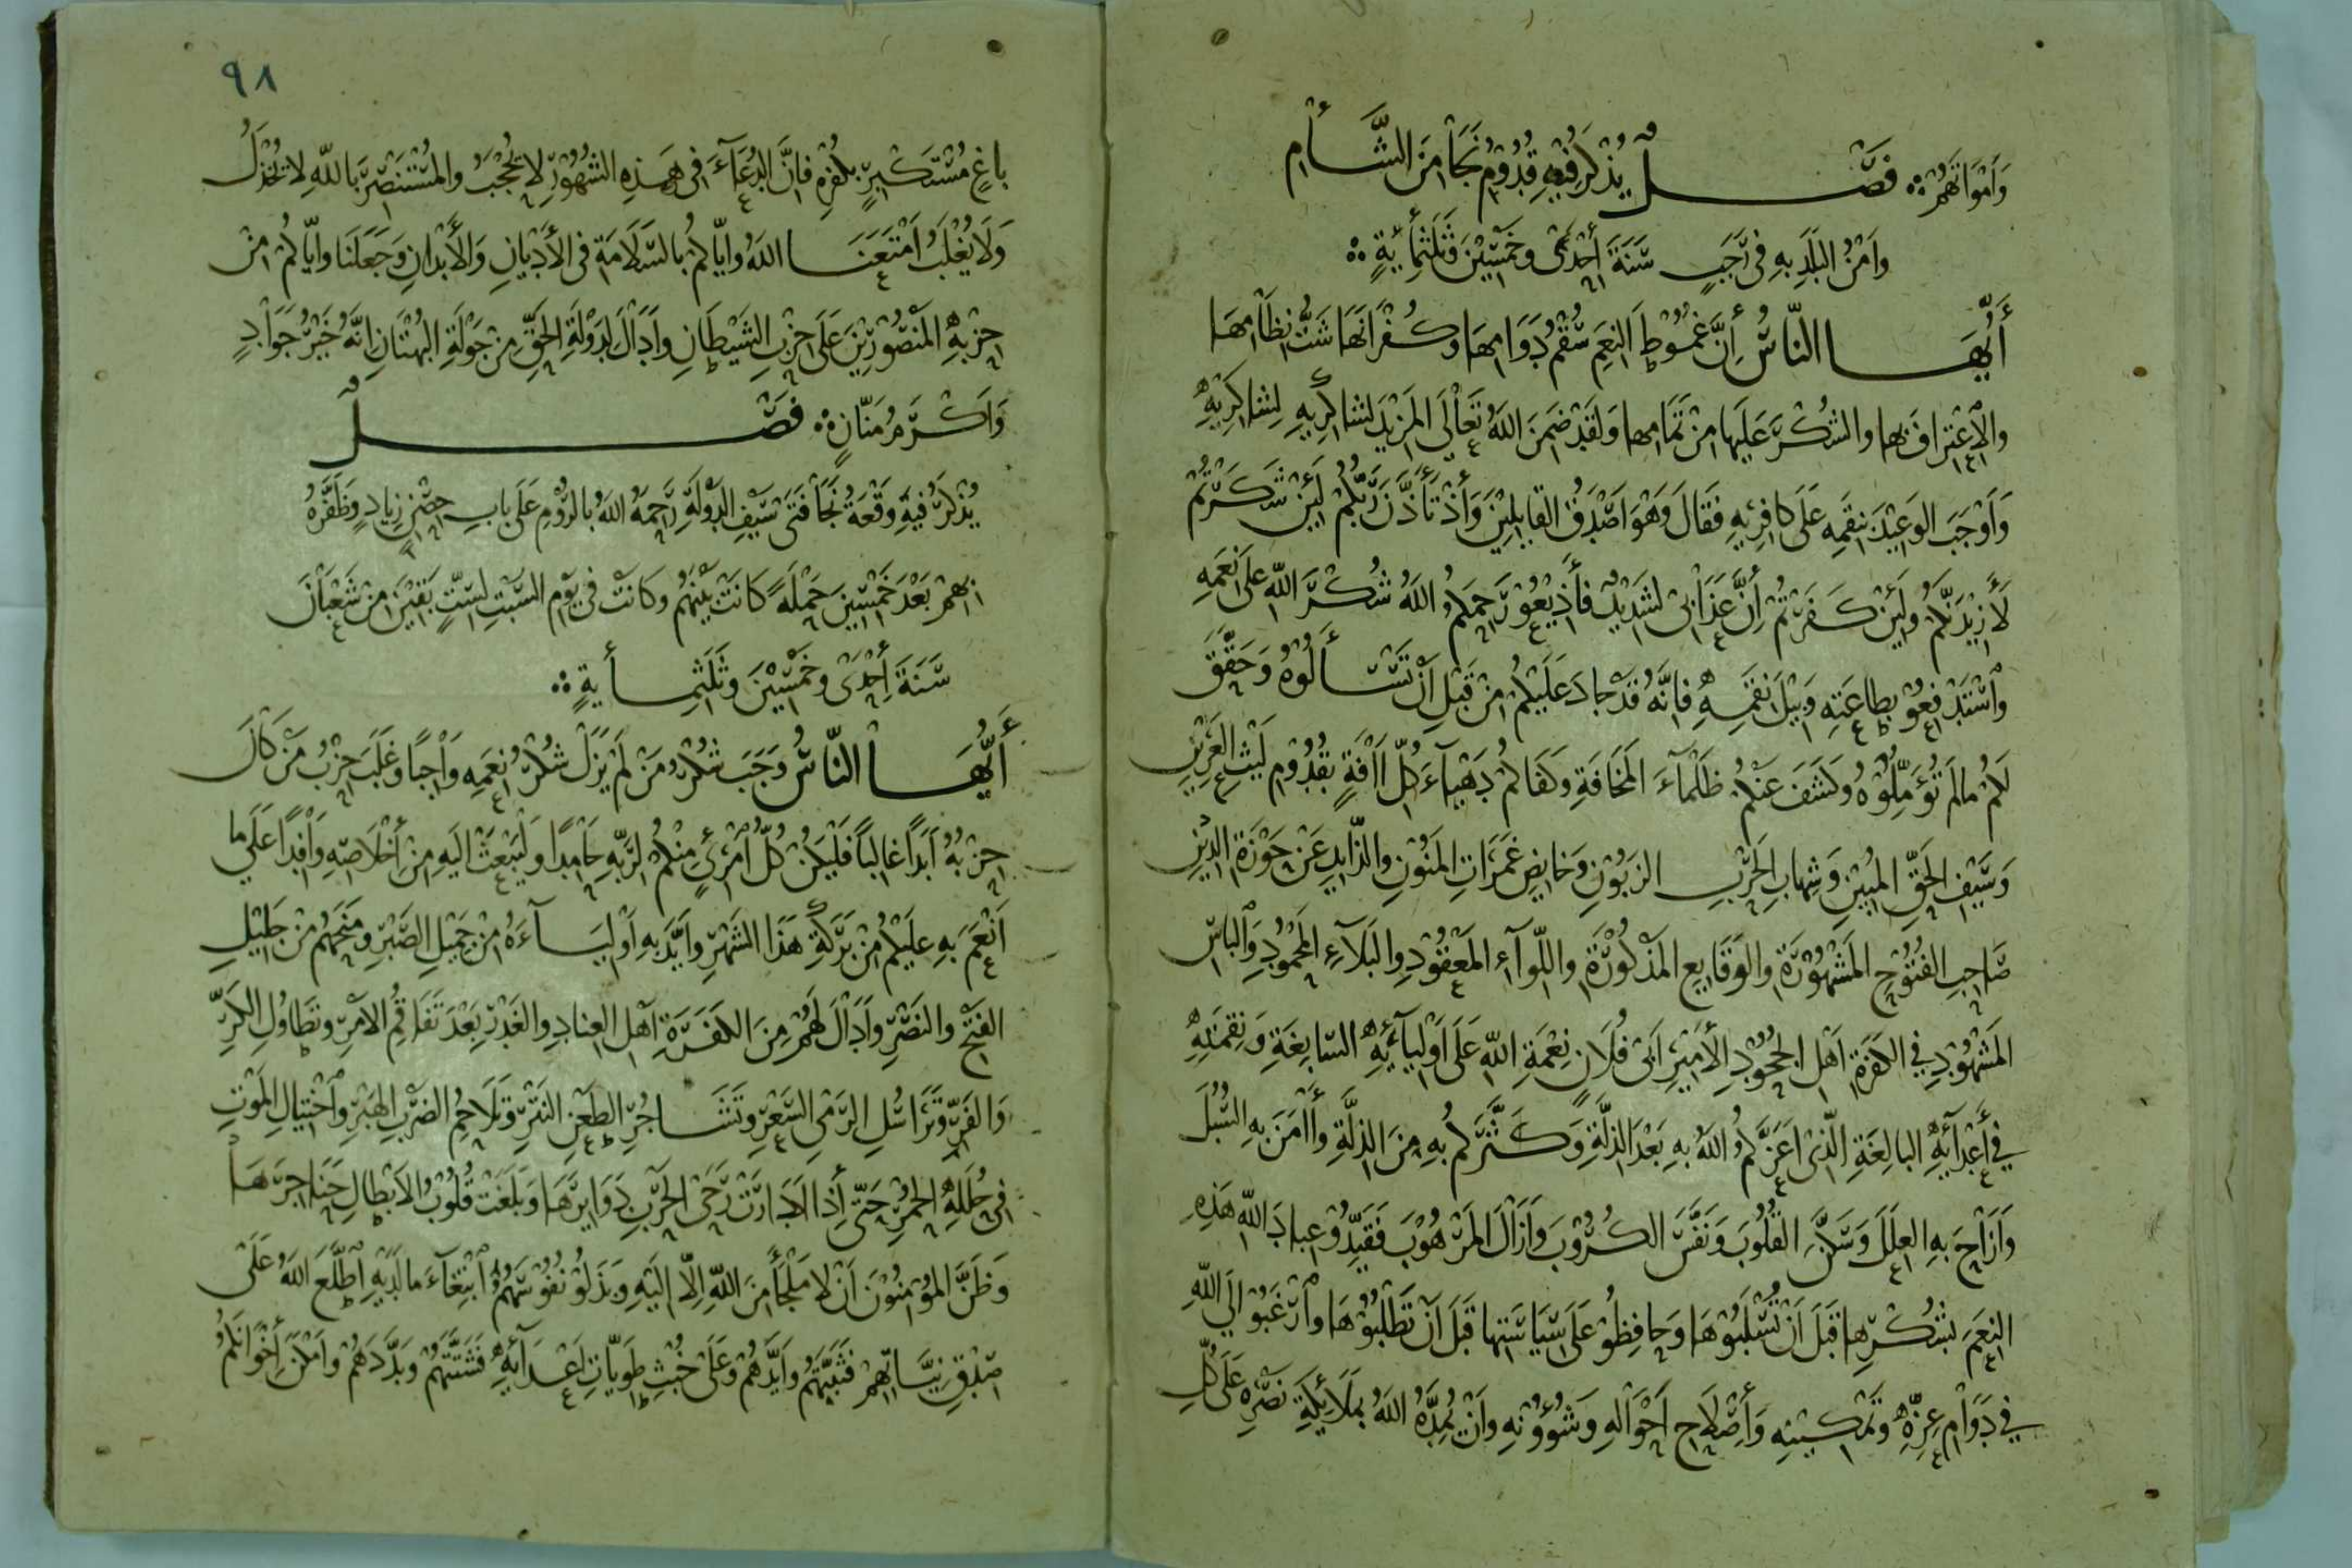 وَأَمْوَاتَهُمْ فَصْلٌ يُذْكَرُ فِيْهِ قُدُوْمُ نَجَا مِنَ الشَّأْمِ
وَأَمْنُ البَلَدِ بِهِ فِي رَجَبٍ سَنَةَ أِحْدَى وَخَمْسِيْنَ وَثَلَثِمِأيَةٍ
أَيُّهَا النَّاسُ أِنَّ غُمُوْطَ النِعَمِ سُقْمُ دَوَامِهَا وَكُفْرَانَهَا شَتُّ نِظَامِهَا
وَالِاعْتِرَافَ بِهَا وَالشُكْرَ عَلَيْهَا مِنْ تَمَامِهَا وَلَقَدْ ضَمِنَ اللهُ تَعَالَى المَزِيْدَ لِشَاكِرِيْهِ لِشَاكِرِيْهِ
وَأَوْجَبَ الوَعِيْدَ بِنِقَمِهِ عَلَى كَافِرِيْهِ فَقَالَ وَهْوَ أَصْدَقُ القَايِلِيْنَ وَأِذْ تَأَذَّنَ رَبُّكُمْ لَئِنْ شَكَرْتُمْ
لَأَزِيْدَنَّكُمْ وَلَئِنْ كَفَرْتُمْ أِنَّ عَذَابِي لَشَدِيْدٌ فَأَذِيْعُوْ رَحِمَكُمُ اللهُ شُكْرَ اللهِ عَلَى نِعَمِهِ
وَاسْتَدْفِعُوْ بِطَاعَتِهِ وَبِيْلَ نِقَمِهِ فَإِنَّهُ قَدْ جَادَ عَلَيْكُمْ مِنْ قَبْلِ أَنْ تَسْأَلُوْهُ وَحَقَّقَ
لَكُمْ مَا لَمْ تُؤَمِّلُوْهُ وَكَشَفَ عَنْكُمْ ظَلْمَآءَ المَخَافَةِ وَكَفَاكُمْ دَهْيَآءَ كُلِّ اافَةٍ بِقُدُوْمِ لَيْثِ العَرِيْنِ
وَسَيْفِ الحَقِّ المُبِيْنِ وَشِهَابِ الحَرْبِ الزَبُوْنِ وَخَايِضِ غَمَرَاتِ المَنُوْنِ وَالذَّايِدِ عَنْ حَوْزَةِ الدِيْنِ
صَاحِبِ الفُتُوْحِ المَشْهُوْرَةِ وَالوَقَايِعِ المَذْكُوْرَةِ وَاللِّوَآءِ المَعْقُوْدِ وَالبَلَآءِ المَحْمُوْدِ وَالبَاسِ
المَشْهُوْدِ فِي الكَفَرَةِ أَهْلِ الجُحُوْدِ الأَمِيْرِ أَبِي فُلَانٍ نِعْمَةِ اللهِ عَلَى أَوْلِيَآئِهِ السَّابِغَةِ وَنِقْمَتِهِ
فِي أَعْدَآئِهِ البَالِغَةِ الَّذِي أَعَزَّكُمُ اللهُ بِهِ بَعْدَ الذِلَّةِ وَكَثَّرَكُمْ بِهِ مِنَ الذِلَّةِ وَأَامَنَ بِهِ السُبُلَ
وَأَزَاحَ بِهِ العِلَلَ وَسَكَّنَ القُلُوْبَ وَنَفَّسَ الكُرُوْبَ وَأَزَالَ المَرْهُوْبَ فَقَيِّدُوْ عِبَادَ اللهِ هَذِهِ
النِعَمَ بِشُكْرِهَا قَبْلَ أَنْ تُسْلَبُوْهَا وَحَافِظُوْ عَلَى سِيَاسَتِهَا قَبْلَ أَنْ تَطْلُبُوْهَا وَارْغَبُوْ إِلَى اللهِ
فِي دَوَامِ عِزِّهِ وَتَمْكِيْنِهِ وَأِصْلَاحِ أَحْوَالِهِ وَشُؤُوْنِهِ وَأَنْ يُمِدَّهُ اللهُ بِمَلَائِكَةِ نَصْرِهِ عَلَى كُلِّ
٩٨
بَاغٍ مُسْتَكْبِرٍ بِكُفْرِهِ فَإِنَّ الدُعَآءَ فِي هَذِهِ الشُهُوْرِ لَا يُحْجَبُ وَالمُسْتَنْصِرَ بِاللهِ لَا يُخْذَلُ
وَلَا يُغْلَبُ أَمْتَعَنَا اللهُ وَإِيَّاكُمْ بِالسَّلَامَةِ فِي الأَدْيَانِ وَالأَبْدَانِ وَجَعَلَنَا وَإِيَّاكُمْ مِنْ
حِزْبِهِ المَنْصُوْرِيْنَ عَلَى حِزْبِ الشَّيْطَانِ وَأَدَالَ لِدَوْلَةِ الحَقِّ مِنْ جَوْلَةِ البُهْتَانِ إِنَّهُ خَيْرُ جَوَادٍ
وَأَكْرَمُ مَنَّانٍ فَصْلٌ
يُذْكَرُ فِيْهِ وَقْعَةُ نَجَا فَتَى سَيْفِ الدَوْلَةِ رَحِمَهُ اللهُ بِالرُوْمِ عَلَى بَابِ حِصْنِ زِيَادٍ وَظَفَرُهُ
بِهِمْ بَعْدَ خَمْسِيْنَ حَمْلَةً كَانَتْ بَيْنَهُمْ وَكَانَتْ فِي يَوْمِ السَبْتِ لِسِتٍّ بَقِيْنَ مِنْ شَعْبَانَ
سَنَةَ أِحْدَى وَخَمْسِيْنَ وَثَلَثِمِأيَةٍ
أَيُّهَا النَّاسُ وَجَبَ شُكْرُ مَنْ لَمْ يَزَلْ شُكْرُ نِعَمِهِ وَاجِبًا وَغَلَبَ حِزْبُ مَنْ كَانَ
حِزْبُهُ أَبَدًا غَالِبًا فَلْيَكُنْ كُلُّ امْرِئٍ مِنْكُمْ لِرَبِّهِ حَامِدًا وَلْيَبْعَثْ إِلَيْهِ مِنْ أِخْلَاصِهِ وَافِدًا عَلَى مَا
أَنْعَمَ بِهِ عَلَيْكُمْ مِنْ بَرَكَةِ هَذَا الشَهْرِ وَأَيَّدَ بِهِ أَوْلِيَآءَهُ مِنْ جَمِيْلِ الصَبْرِ وَمَنَحَهُمْ مِنْ جَلِيْلِ
الفَتْحِ وَالنَصْرِ وَأَدَالَ لَهُمْ مِنَ الكَفَرَةِ أَهْلِ العِنَادِ وَالغَدْرِ بَعْدَ تَفَاقُمِ الأَمْرِ وَتَطَاوُلِ الكَرِّ
وَالفَرِّ وَتَرَاسُلِ الرَمْيِ السَعْرِ وَتَشَاجُرِ الطَعْنِ النَتْرِ وَتَلَاحُمِ الضَرْبِ الهَبْرِ وَاخْتِيَالِ المَوْتِ
فِي حُلَلِهِ الحُمْرِ حَتَّى أِذَا دَارَتْ رَحَى الحَرْبِ دَوَايِرَهَا وَبَلَغَتْ قُلُوْبُ الأَبْطَالِ حَنَاجِرَهَا
وَظَنَّ المُؤْمِنُوْنَ أَنْ لَا مَلْجَأَ مِنَ اللهِ إِلَّا إِلَيْهِ وَبَذَلُوْ نُفُوْسَهُمُ ابْتِغَآءَ مَا لَدَيْهِ اطَّلَعَ اللهُ عَلَى
صِدْقِ نِيَّاتِهِمْ فَثَبَّتَهُمْ وَأَيَّدَهُمْ وَعَلَى خُبْثِ طَوِيَّاتِ أَعْدَآئِهِ فَشَتَّتَهُمْ وَبَدَّدَهُمْ وَأَمْكَنَ أِخْوَانَكُمْ